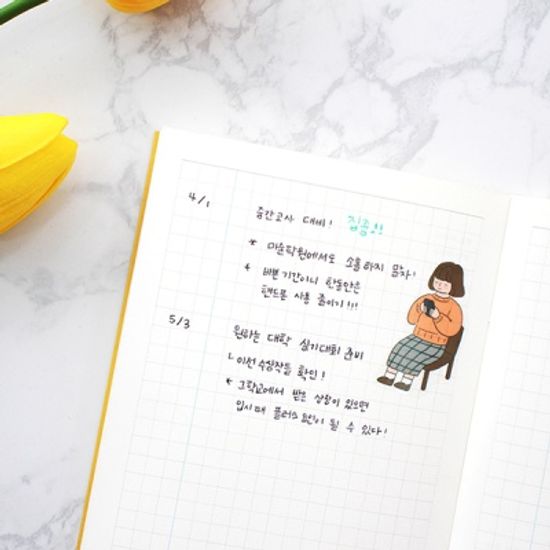 4/1
중간고사 대비! 집중!!
* 미술학원에서도 소홀하지 말자!
* 바쁜 기간이니 한동안은
핸드폰 사용 줄이기!!!
5/3
원하는 대학 실기대회 준비
ㄴ 이전 수상작들 확인!
* 그 학교에서 받은 상장이 있으면
입시 때 플러스 요인이 될 수 있다!